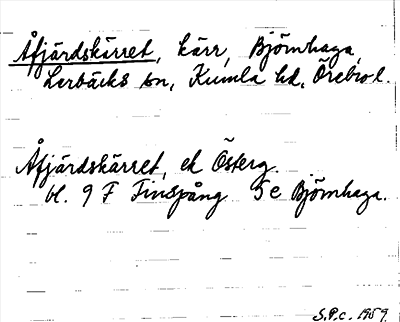 Åfjärdskärret, kärr, Björnhaga,
Lerbäcks sn, Kumla hd, Örebro l.
Åfjärdskärret, ek Österg.
bl. 9 F Finspång 5 e Björnhaga.
S.P.c. 1959.